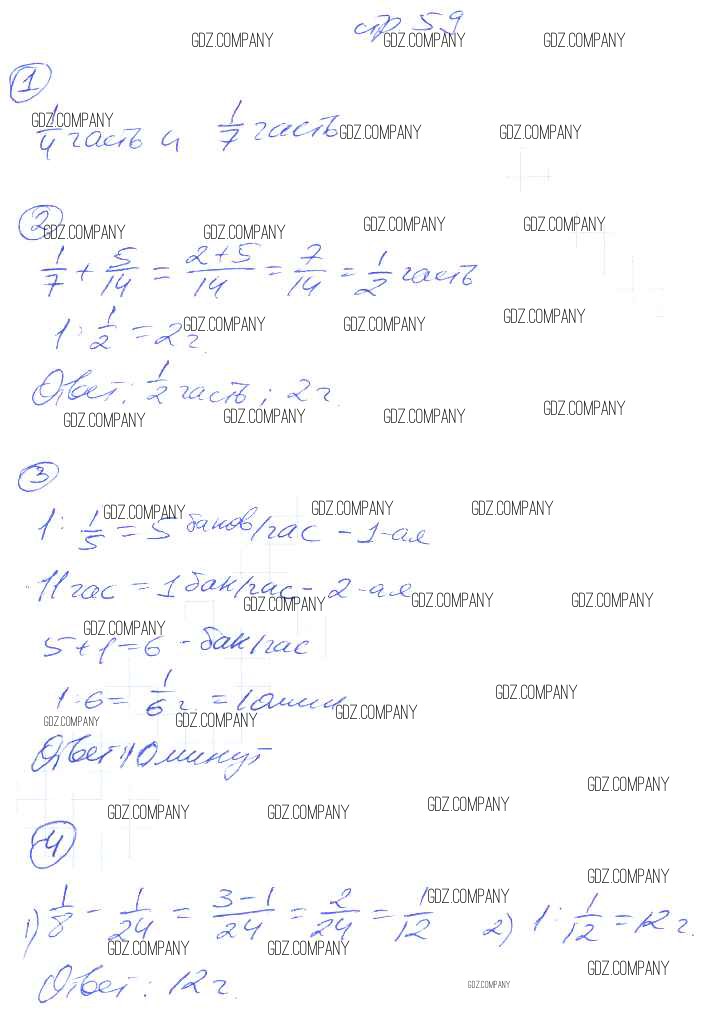 стр 59
GDZ.COMPANY GDZ.COMPANY GDZ.COMPANY
1
GDZ.COMPANY GDZ.COMPANY GDZ.COMPANY
1/4 часть и 1/7 часть
2
GDZ.COMPANY GDZ.COMPANY GDZ.COMPANY GDZ.COMPANY
1/7 + 5/14 = 2+5/14 = 7/14 = 1/2 часть
1 : 1/2 = 2 ч.
GDZ.COMPANY GDZ.COMPANY GDZ.COMPANY
Ответ: 1/2 часть; 2 ч.
GDZ.COMPANY GDZ.COMPANY GDZ.COMPANY GDZ.COMPANY
3
GDZ.COMPANY GDZ.COMPANY GDZ.COMPANY
1 : 1/5 = 5 баков/час - 1-ая
1/1 час = 1 бак/час - 2-ая
GDZ.COMPANY GDZ.COMPANY GDZ.COMPANY
GDZ.COMPANY
5 + 1 = 6 - бак/час
1 : 6 = 1/6 ч. = 10 мин
GDZ.COMPANY GDZ.COMPANY GDZ.COMPANY GDZ.COMPANY
Ответ: 10 минут
GDZ.COMPANY GDZ.COMPANY GDZ.COMPANY GDZ.COMPANY
4
GDZ.COMPANY
GDZ.COMPANY
1) 1/8 - 1/24 = 3-1/24 = 2/24 = 1/12 2) 1 : 1/12 = 12 ч.
GDZ.COMPANY GDZ.COMPANY GDZ.COMPANY
Ответ: 12 ч.
GDZ.COMPANY